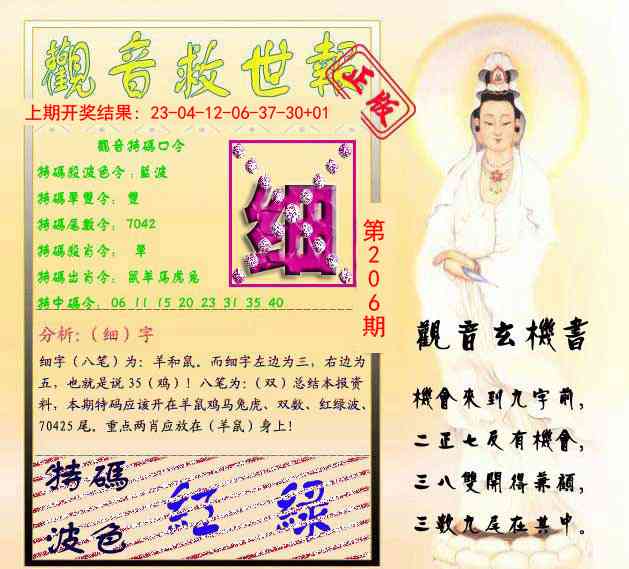 觀音救世報
正版
上期开奖结果：23-04-12-06-37-30+01
觀音特碼口令
特碼殺波色令：藍波
特碼單雙令：雙
特碼尾數令：7042
特碼殺肖令：單
特碼出肖令：鼠羊馬虎兔
特中碼令：06 11 15 20 23 31 35 40
细
第206期
分析：（细）字
细字（八笔）为：羊和鼠。而细字左边为三，右边为
五，也就是说 35（鸡）！八笔为：（双）总结本报资
料，本期特码应该开在羊鼠鸡马兔虎、双数、红绿波、
70425 尾。重点两肖应放在（羊鼠）身上！
特碼
波色
紅 綠
觀音玄機書
機會來到九字前，
二正七反有機會，
三八雙開得兼顧，
三數九尾在其中。